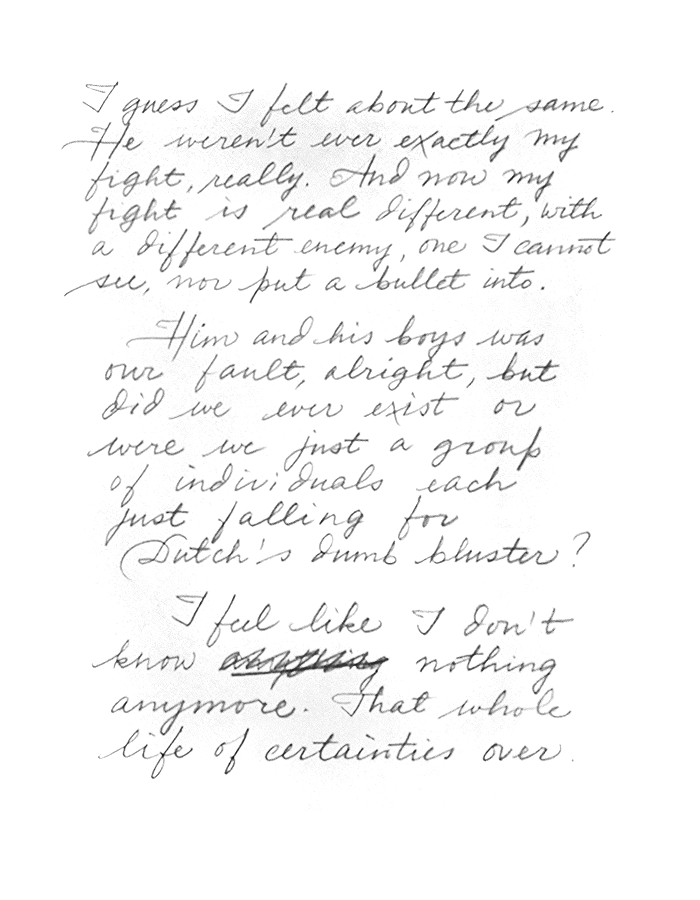 I guess I felt about the same.
He weren't ever exactly my
fight, really. And now my
fight is real different, with
a different enemy, one I cannot
see, nor put a bullet into.
Him and his boys was
our fault, alright, but
did we ever exist or
were we just a group
of individuals each
just falling for
Dutch's dumb bluster?
I feel like I don't
know anything nothing
anymore. That whole
life of certainties over.